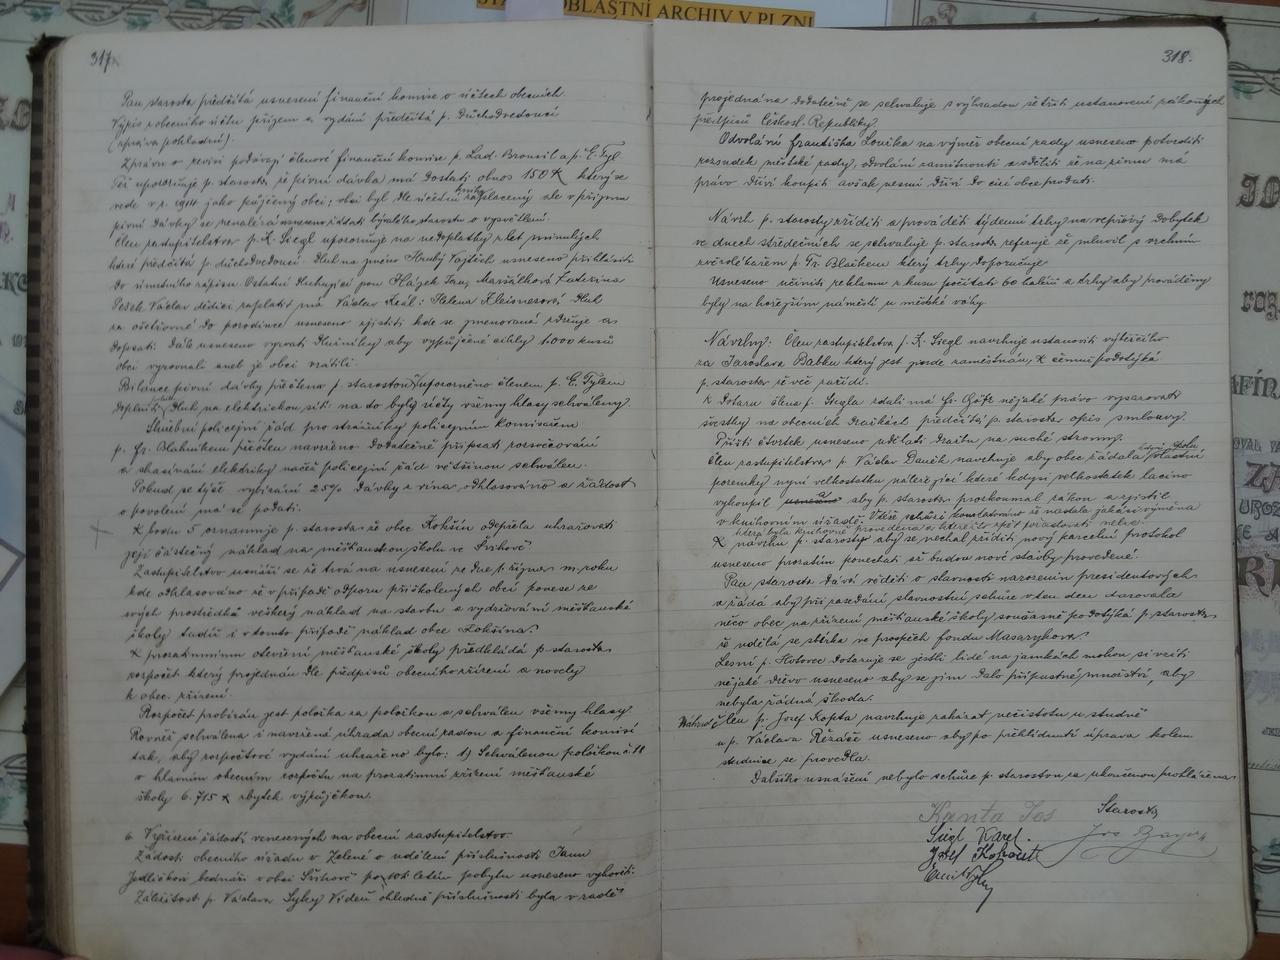 OBLASTNÍ ARCHIV V PLZNI
317
Pan starosta předčítá usnesení finanční komise o účtech obecních
Výpis z obecního účtu příjem a vydání předčítá p. důchodvedoucí
(zpráva pokladní).
Zprávu o revisi podávají členové finanční komise p. Lad. a p. E. Tyl
Týž upozorňuje p. starostu že pivní dávka má dostati obnos 150 K který se
vede v r. jako půjčený obci; obci byl dle účetní knihy zaplacený ale v příjem
pivní dávky se nenalézá usneseno žádati bývalého starostu o vysvětlení.
Člen zastupitelstva p. K. Siegl upozorňuje na nedoplatky z let minulých
které předčítá p. důchodvedoucí. Dluh na jméno Hrubý Vojtěch usneseno přihlásiti
do úmrtního zápisu Ostatní dluhující jsou Hájek Jan, Maršálková Kateřina
Pešek Václav dědici zaplatit má Václav Král: Helena Kleisnerová dluh
za ošetřovné do porodince usneseno zjistiti kde se jmenovaná zdržuje a
dopsati. Dále usneseno vyzvati dlužníky aby vypůjčené cihly 1000 kusů
obci vyrovnali aneb je obci vrátili
Bilance pivní dávky přečtena p. starostou upozorněno členem p. E. Tylem
doplniti dluh na elektrickou síti: na to byly účty všemi hlasy schváleny
Služební policejní řád pro strážníky policejním komisařem
p. Fr. Blahníkem přečten navrženo dodatečně připsati rozsvěcování
a zhasínání elektriky načež policejní řád většinou schválen.
Pokud se týče vybírání 25% dávky z vína odhlasováno a žádost
o povolení má se podati.
K bodu 5 oznamuje p. starosta že obec Kokšín odepřela uhrazovati
její částečný náklad na měšťanskou školu ve Švihově.
Zastupitelstvo usnáší se že trvá na usnesení ze dne 1 října m. roku
kde odhlasováno že v případě odporu přiškolených obcí ponese ze
svých prostředků veškerý náklad na stavbu a vydržování měšťanské
školy tudíž i v tomto případě náklad obce Kokšína.
K prozatimnímu otevření měšťanské školy předkládá p. starosta
rozpočet který projednán dle předpisů obecního zřízení a novely
k obec. zřízení.
Rozpočet probírán jest položka za položkou a schválen všemi hlasy
Rovněž schválena i navržená úhrada obecní radou a finanční komisí
tak, aby rozpočtové vydání uhraženo bylo: 1) Schválenou položkou č 18
v hlavním obecním rozpočtu na prozatimní zřízení měšťanské
školy 6.715 K zbytek výpůjčkou.
6. Vyřízení žádostí vznesených na obecní zastupitelstvo.
Žádosti obecního úřadu v Zelené o udělení příslušnosti Janu
Jedličkovi bednáři v obci Švihově po 10ti letém pobytu usneseno vyhověti.
Záležitost p. Václava Vídeň ohledně příslušnosti byla v radě
318.
projednána dodatečně se schvaluje s výhradou šetřiti ustanovení zákonných
předpisů Českosl. Republiky.
Odvolání Františka Lovíka na výměr obecní rady usneseno potvrditi
rozsudek městské rady, odvolání zamítnouti a sděliti že na zimu má
právo dříví koupiti avšak nesmí dříví do cizí obce prodati.
Návrh p. starosty zříditi a prováděti týdenní trhy na vepřový dobytek
ve dnech středečních se schvaluje p. starosta referuje že mluvil s vrchním
zvěrolékařem p. Fr. Blaškem který trhy doporučuje
Usneseno učiniti reklamu z kusu počítati 60 haléřů a trhy aby prováděny
byly na hořejším náměstí u městské váhy.
Návrhy: Člen zastupitelstva p. K. Siegl navrhuje ustanoviti výběrčího
za Jaroslava Babku který jest jinde zaměstnán, K čemuž podotýká
p. starosta že věc zařídí.
K dotazu člena p. Siegla zdali má Fr. nějaké právo vysazovati
švestky na obecních předčítá p. starosta opis smlouvy.
Příští čtvrtek usneseno udělati dražbu na suché stromy.
Člen zastupitelstva p. Václav Daněk navrhuje aby obec žádala vlastní
pozemky nyní velkostatku náležející které kdysi velkostatek lacino
vykoupil aby p. starosta prozkoumal zákon a zjistil
v knihovním úřadě. že nastala jakási výměna
která byla knihovně provedena a kterážto zpět požadovati nelze.
K návrhu p. starosty aby se nechal zříditi nový parcelní protokol
usneseno prozatím ponechati až budou nové stavby provedené.
Pan starosta dává věděti o slavnosti narozenin presidentových
a žádá aby při zasedání slavnostní schůze v ten den darovala
něco obec na zřízení měšťanské školy současně podotýká p. starosta
že udělá se sbírka ve prospěch fondu Masarykova.
Lesní p. Hotovec dotazuje se jestli lidé na jamkách mohou si vzíti
nějaké dřevo usneseno aby se jim dalo přípustné množství, aby
nebyla žádná škoda.
člen p. Josef Kopta navrhuje zakázat nečistotu u studně
u p. Václava Řezáče usneseno aby po přehlídnutí úprava kolem
studnice se provedla.
Dalšího usnášení nebylo schůze p. starostou za ukončenou prohlášena
Kanta Jos
Starosta
Siegl Karel.
Josef